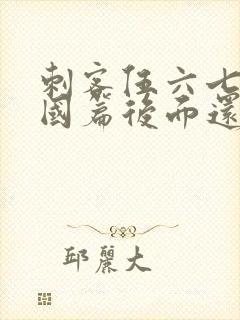 刺客伍六七
國篇後而還
邱麗大